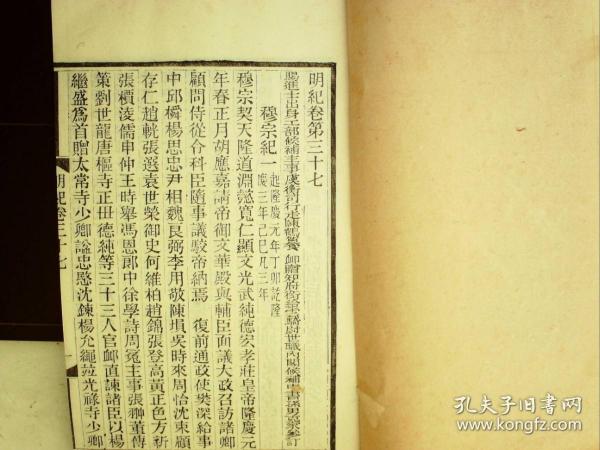 明紀卷第三十七
賜進士出身工部候補主事虞衡司行走陳鶴纂 卹贈知府銜給雲騎尉世職內閣候補中書孫男克家參訂
穆宗紀一 起隆慶元年丁卯訖隆慶三年己巳凡三年
穆宗契天隆道淵懿寬仁顯文光武純德宏孝莊皇帝隆慶元
年春正月胡應嘉請帝御文華殿與輔臣面議大政召訪諸卿
顧問侍從令科臣隨事議駮帝納焉 復前通政使樊深給事
中邱橓楊思忠尹相魏良弼李用敬陳瓚吳時來周怡沈束顧
存仁趙輄張選袁世榮御史何維柏趙錦張登高黃正色方新
張檟淩儒申仲王時舉馮恩郎中徐學詩周冕主事張翀董傳
策劉世龍唐樞寺正毌德純等三十三人官卹直諫諸臣以楊
繼盛爲首贈太常寺少卿諡忠愍沈鍊楊允繩竝光祿寺少卿
明紀卷三十七
一
孔夫子旧书网
www.kongfz.com